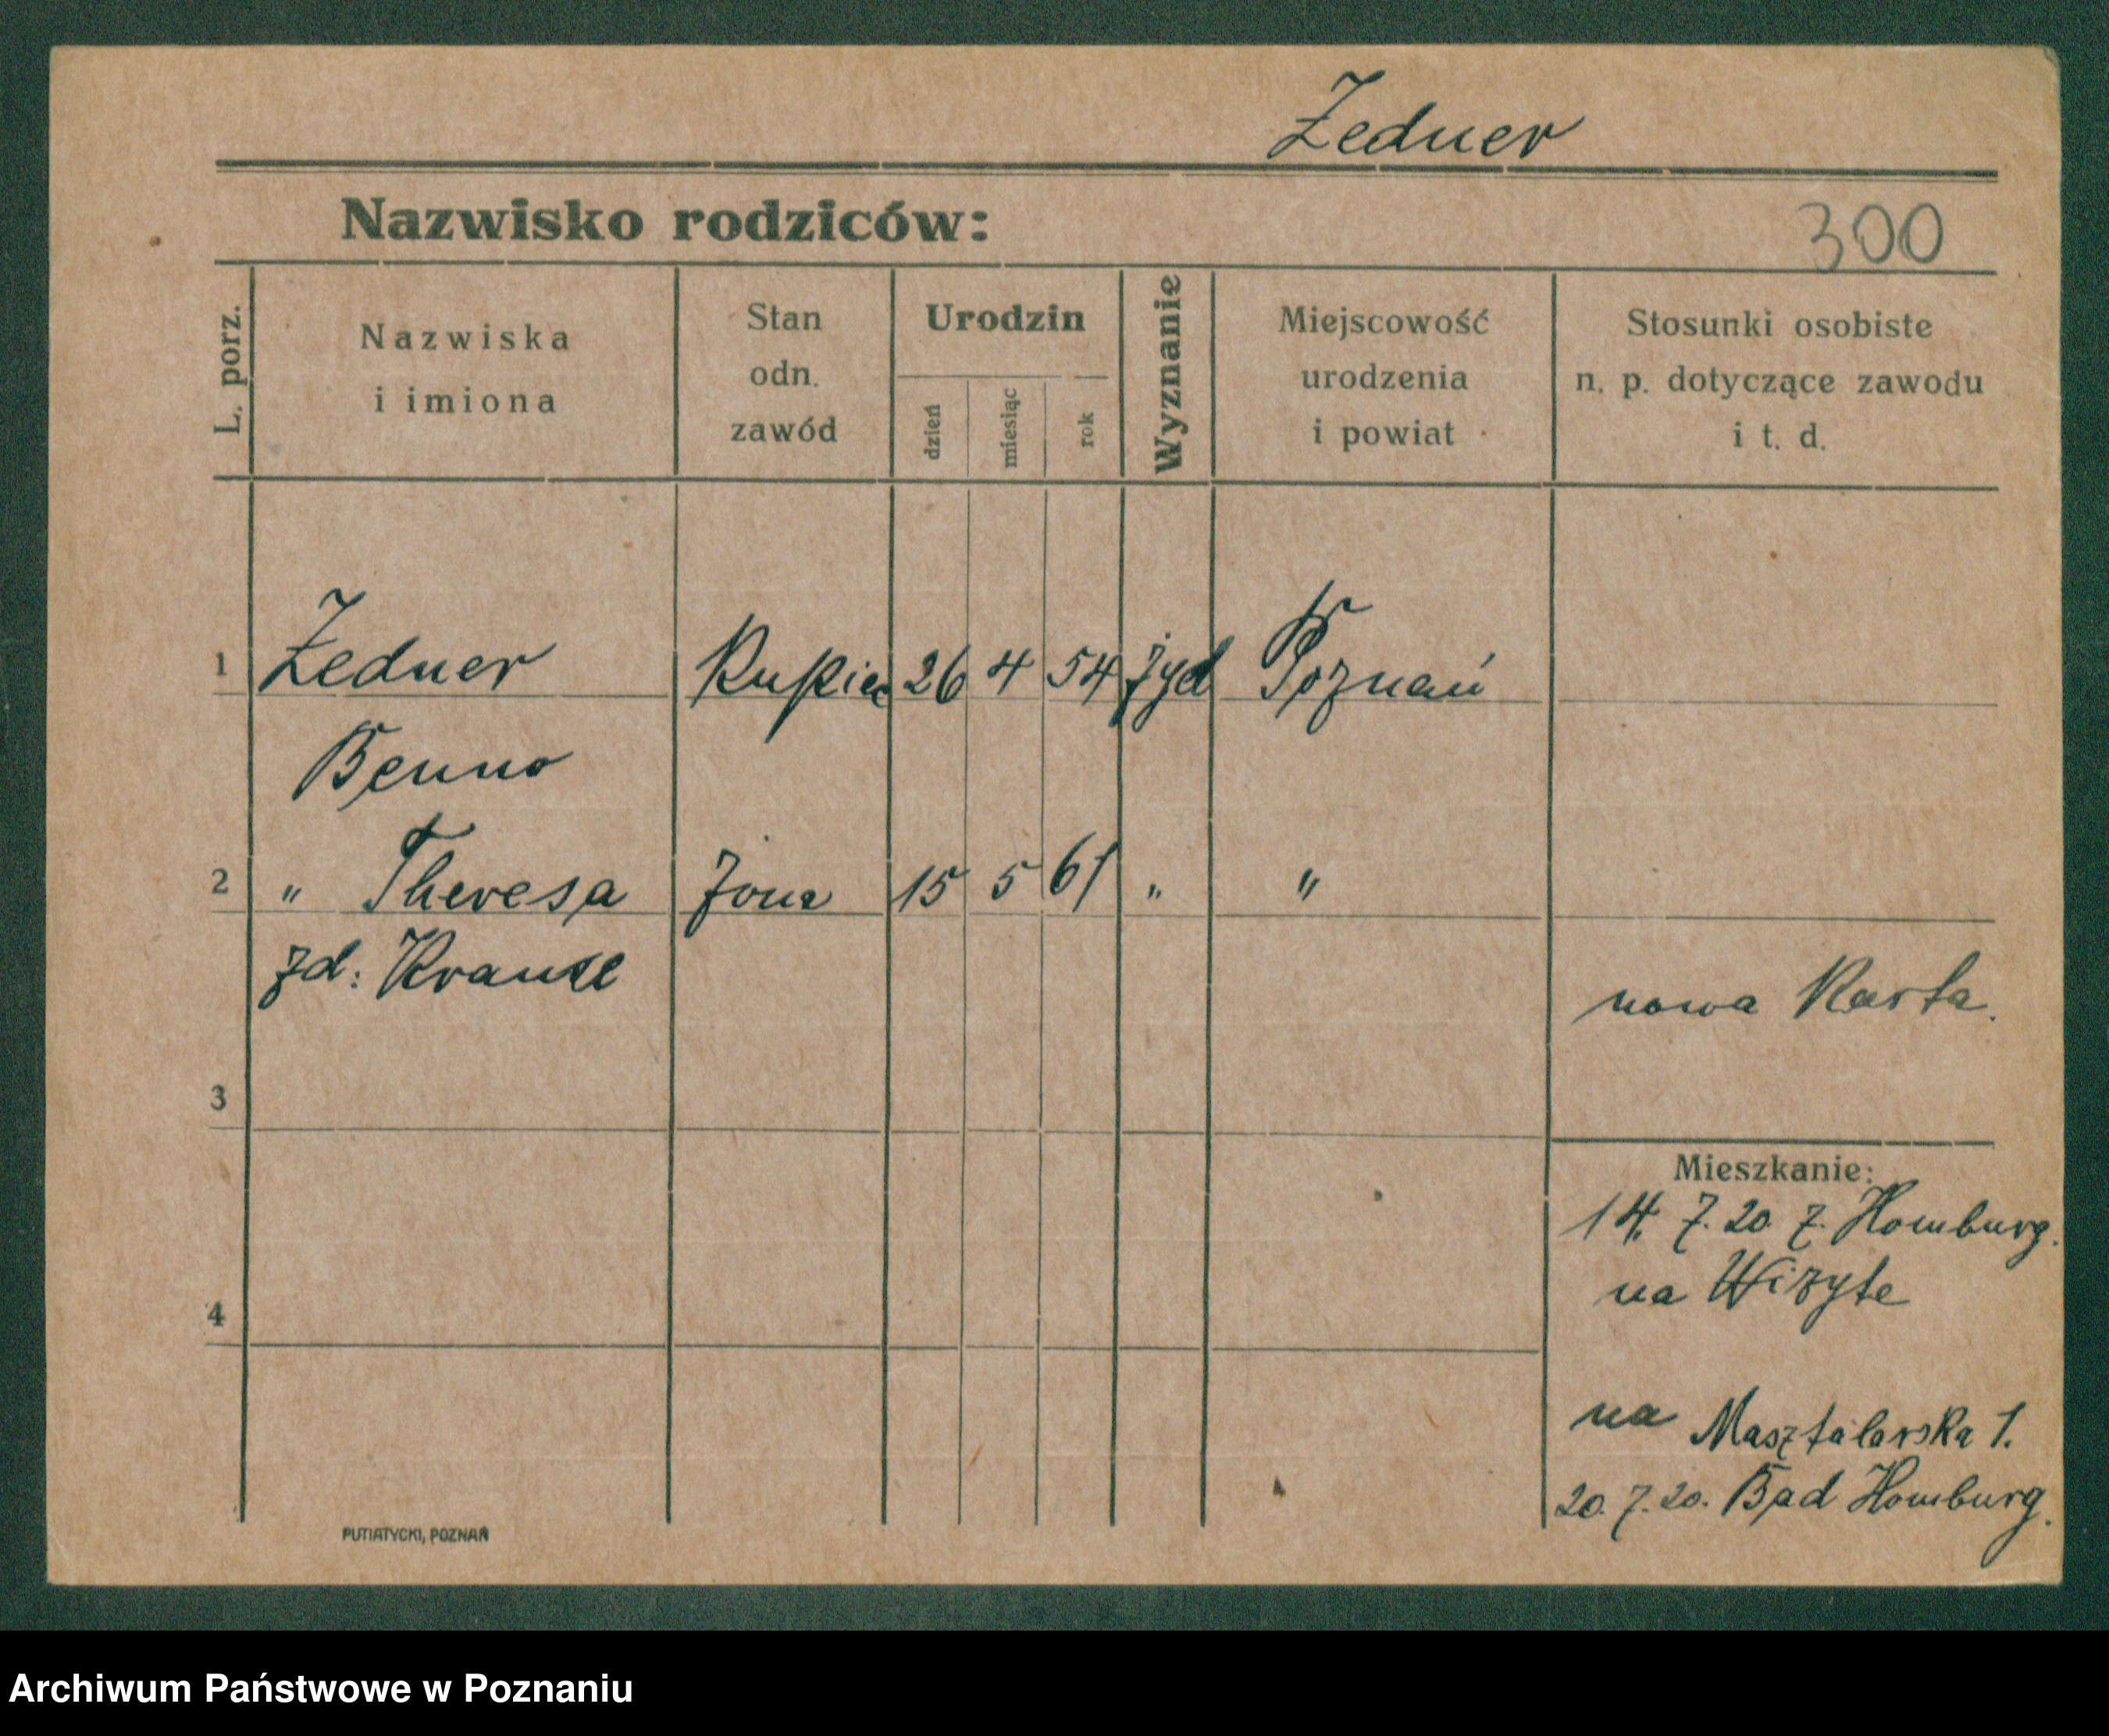 Zedner
Nazwisko rodziców:
300
L. porz.
Nazwiska
i imiona
Stan
odn.
zawód
Urodzin
dzień
miesiąc
rok
Wyznanie
Miejscowość
urodzenia
i powiat
Stosunki osobiste
n. p. dotyczące zawodu
i t. d.
1 Zedner Kupiec 26 4 54 żyd Poznań
Benno
2 " Theresa żona 15 5 61 " "
zd: Krause
nowa Karta.
3
Mieszkanie:
14. 7. 20 z. Homburg.
na Wizyte
4
na Masztalarska 1.
20. 7. 20. Bad Homburg.
PUTIATYCKI, POZNAŃ
Archiwum Państwowe w Poznaniu